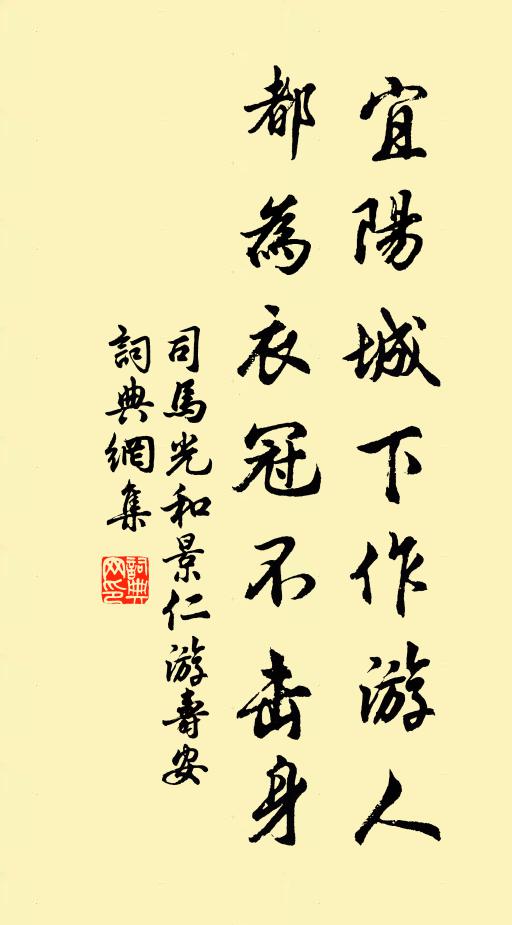 宜陽城下作游人
都為衣冠不身
司馬光和景仁游壽安
詞典網集
詞典网印